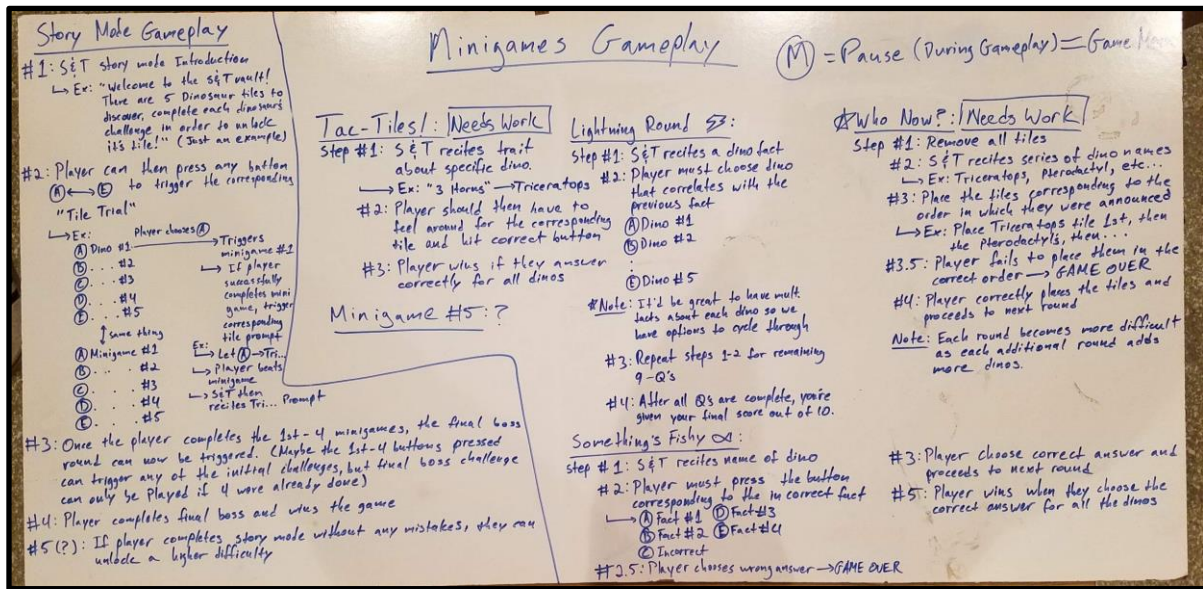 Story Mode Gameplay
#1: S&T story mode Introduction
↳ Ex: "Welcome to the S&T vault!
There are 5 Dinosaur tiles to
discover, complete each dinosaur's
challenge in order to unlock
it's tile!" (Just an example)
#2: Player can then press any button
Ⓐ↔Ⓔ to trigger the corresponding
"Tile Trial"
↳ Ex: Player chooses Ⓐ
Ⓐ Dino #1 → Triggers
minigame #1
Ⓑ... #2
Ⓒ... #3
Ⓓ... #4
Ⓔ... #5
↳ If player
successfully
completes mini
game, trigger
corresponding
tile prompt
↕ same thing
Ⓐ Minigame #1
Ⓑ... #2
Ⓒ... #3
Ⓓ... #4
Ⓔ... #5
Ex:
↳ Let Ⓐ→Tri...
↳ Player beats
minigame
↳ S&T then
recites Tri... Prompt
#3: Once the player completes the 1st-4 minigames, the final boss
round can now be triggered. (Maybe the 1st-4 buttons pressed
can trigger any of the initial challenges, but final boss challenge
can only be played if 4 were already done)
#4: Player completes final boss and wins the game
#5(?): If player completes story mode without any mistakes, they can
unlock a higher difficulty
Minigames Gameplay
Ⓜ = Pause (During Gameplay) = Game
Tac-Tiles!: Needs Work
Step #1: S&T recites trait
about specific dino.
↳ Ex: "3 Horns" → Triceratops
#2: Player should then have to
feel around for the corresponding
tile and hit correct button
#3: Player wins if they answer
correctly for all dinos
Minigame #5: ?
Lightning Round :
Step #1: S&T recites a dino fact
#2: Player must choose dino
that correlates with the
previous fact
Ⓐ Dino #1
Ⓑ Dino #2
:
Ⓔ Dino #5
*Note: It'd be great to have mult.
facts about each dino so we
have options to cycle through
#3: Repeat steps 1-2 for remaining
9-Q's
#4: After all Q's are complete, you're
given your final score out of 10.
Something's Fishy ∝:
Step #1: S&T recites name of dino
#2: Player must press the button
corresponding to the in correct fact
↳ Ⓐ Fact #1 Ⓓ Fact #3
Ⓑ Fact #2 Ⓔ Fact #4
Ⓒ Incorrect
#2.5: Player chooses wrong answer → GAME OVER
☆Who Now?: Needs Work
Step #1: Remove all tiles
#2: S&T recites series of dino names
↳ Ex: Triceratops, Pterodactyl, etc...
#3: Place the tiles corresponding to the
order in which they were announced
↳ Ex: Place Triceratops tile 1st, then
the Pterodactyls, then...
#3.5: Player fails to place them in the
correct order → GAME OVER
#4: Player correctly places the tiles and
proceeds to next round
Note: Each round becomes more difficult
as each additional round adds
more dinos.
#3: Player choose correct answer and
proceeds to next round
#5: Player wins when they choose the
correct answer for all the dinos